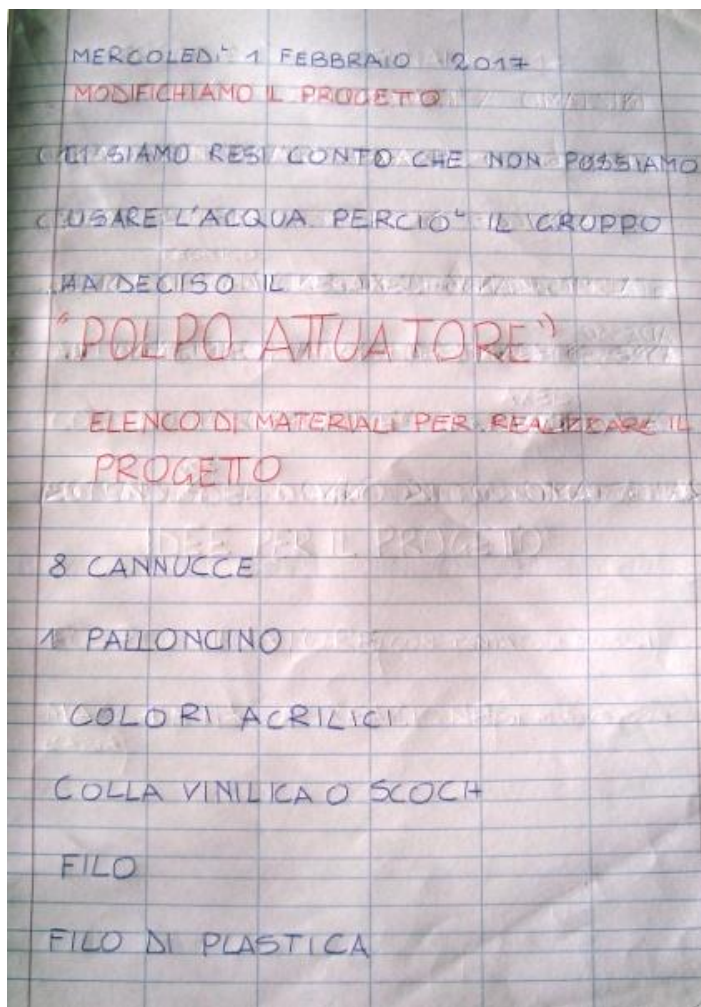 MERCOLEDÌ 1 FEBBRAIO 2017
MODIFICHIAMO IL PROGETTO
CI SIAMO RESI CONTO CHE NON POSSIAMO
USARE L'ACQUA PERCIÒ IL GRUPPO
HA DECISO IL
"POLPO ATTUATORE"
ELENCO DI MATERIALI PER REALIZZARE IL
PROGETTO
IDEE PER IL PROGETTO
8 CANNUCCE
1 PALLONCINO
COLORI ACRILICI
COLLA VINILICA O SCOCH
FILO
FILO DI PLASTICA